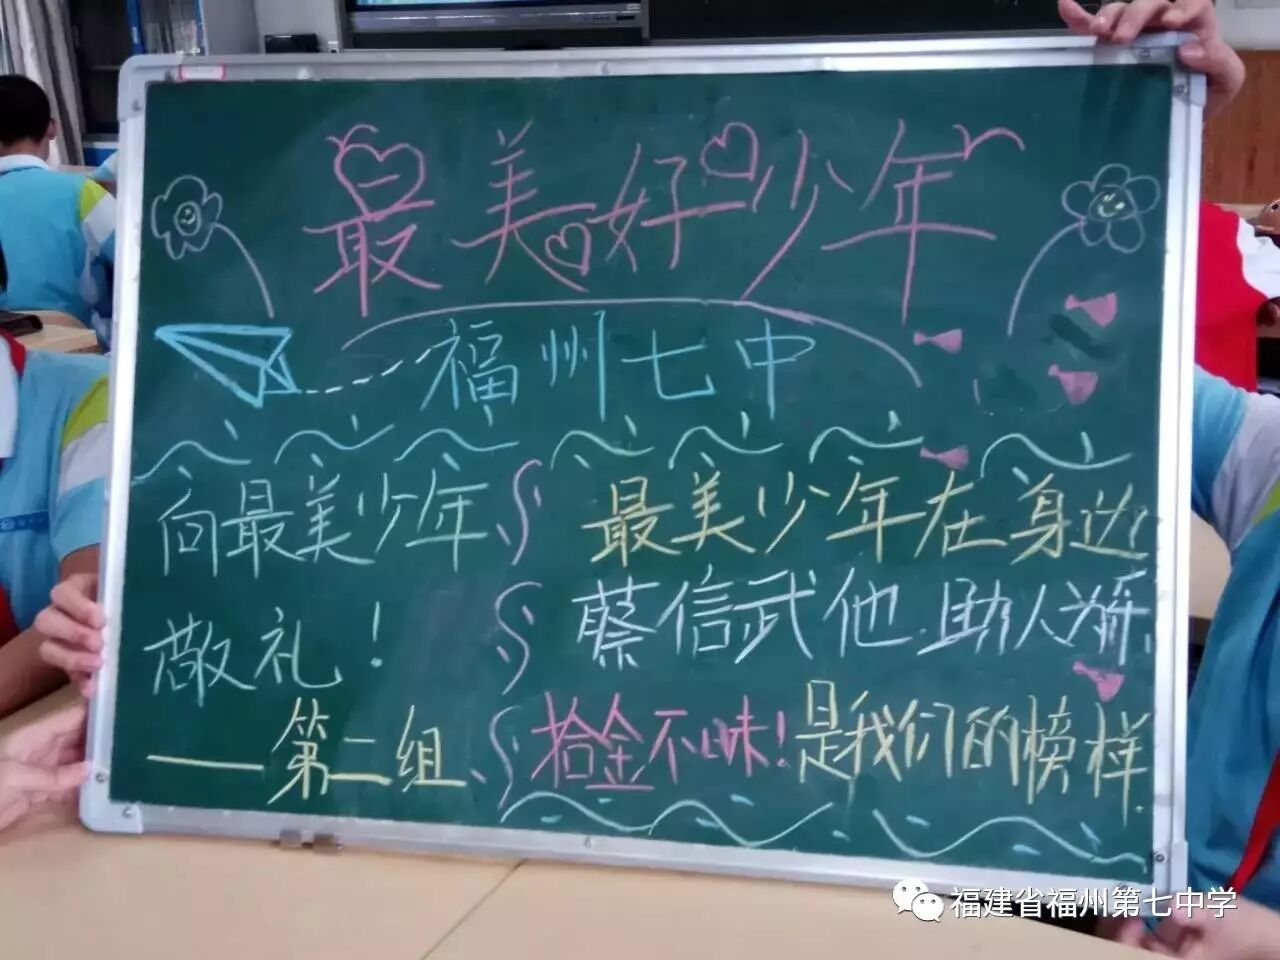 最美好少年
福州七中
向最美少年
敬礼！
——第二组
最美少年在身边
蔡信武他助人为乐
拾金不昧！是我们的榜样.
福建省福州第七中学